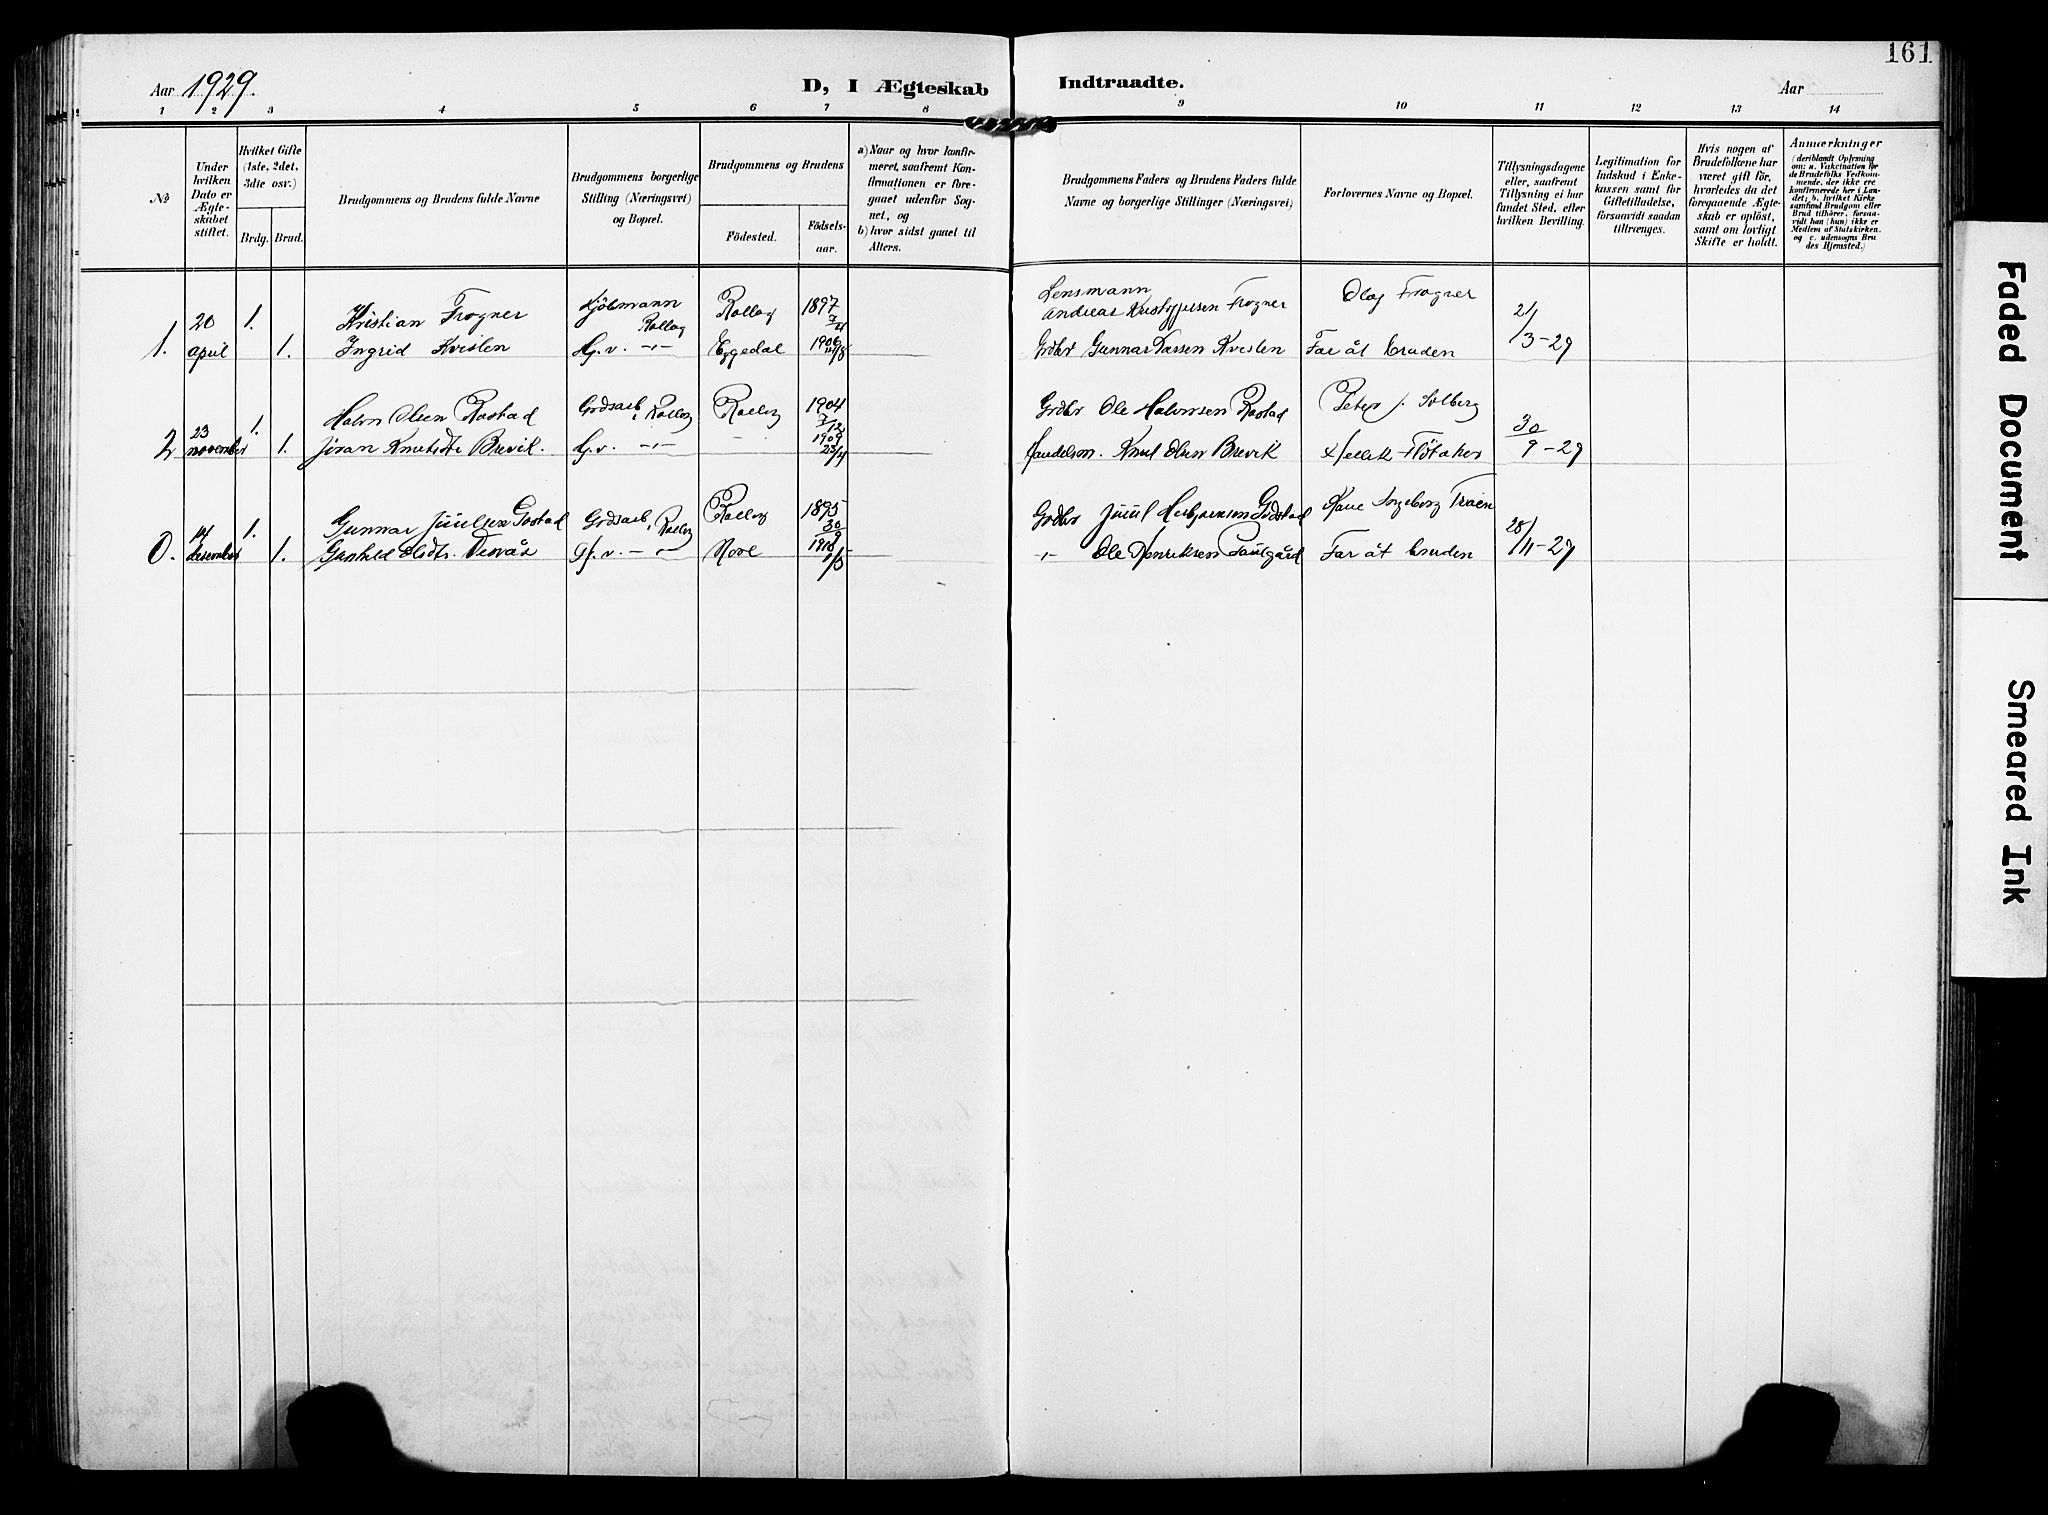 161
Aar 1929.
D, I Ægteskab Indtraadte.
Aar
1 2 3 4 5 6 7 8 9 10 11 12 13 14
No
Under hvilken Dato er Ægteskabet stiftet.
Hvilket Gifte (1ste, 2det, 3die osv.)
Brdg. Brud.
Brudgommens og Brudens fulde Navne
Brudgommens borgerlige Stilling (Næringsvei) og Bopæl.
Brudgommens og Brudens
Födested.
Födselsaar.
a) Naar og hvor konfirmeret, saafremt Konfirmationen er foregaaet udenfor Sognet, og
b) hvor sidst gaaet til Alters.
Brudgommens Faders og Brudens Faders fulde Navne og borgerlige Stillinger (Næringsvei)
Forlovernes Navne og Bopæl.
Tillysningsdagene eller, saafremt Tillysning ei har fundet Sted, efter hvilken Bevilling.
Legitimation for Indskud i Enkekassen samt for Giftetilladelse, forsaavidt saadan tiltrænges.
Hvis nogen af Brudefolkene har været gift før, hvorledes da det foregaaende Ægteskab er opløst, samt om lovligt Skifte er holdt.
Anmerkninger
(deriblandt Oplysning om: a. Vakcination for de Brudefolks Vedkommende, der ikke ere konfirmerede her i Landet; b. hvilket Kirkesamfund Brudgom eller Brud tilhører, forsaavidt han (hun) ikke er Medlem af Statskirken, og c. udensogns Brudes Hjemsted.)
20 1. Kristian Frogner Kjöbmann Rollag Rollag 1897 7/4 Lensmann Andreas Kristoffersen Frogner Olaf Frogner 21/3-29
1. april 1. Ingrid Kvislen Hj.v. -"- Eggedal 1906 Grdbr Gunnar Larsen Kvislen Far åt bruden
23 1. Halvor Olsen Rostad Grdsarb. Rollag Rollag 1904 7/12 Grdbr Ole Halvorsen Rostad Peter J. Solberg 30/9-29
2 november 1. Jöran Knutsdtr Brevik. Hj.v. -"- - 1909 23/4 Handelsm. Knut Olsen Brevik Kjellik Flötaker
14 1. Gunnar Juulsen Gostad Grdsarb. Rollag Rollag 1895 30/9 Grdbr Juul Herbjørnsen Ingeborg Traaen 28/11-29
desember 1. Gunhild Olsdtr. Hj.v. -"- Nore 1910 1/5 -"- Ole Henriksen Far åt bruden
Faded Document
Smeared Ink